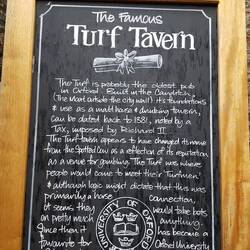 The Famous
Turf Tavern
The Turf is probably the oldest pub
in Oxford. Built in the Canditch,
(The Moat outside the city wall) it's foundations
& use as a malt house & drinking tavern,
can be dated back to 1381, noted by a
Tax, imposed by Richard II.
The Turf tavern appears to have changed it's name
from the Spotted Cow as a reflection of its reputation
as a venue for gambling. The Turf was where
people would come to meet their Turfmen
& although logic might dictate that this was
primarily a horse connection,
it seems they would take bets
on pretty much anything.
Since then it has become a
favourite for Oxford University
UNIVERSITY OF OXFORD